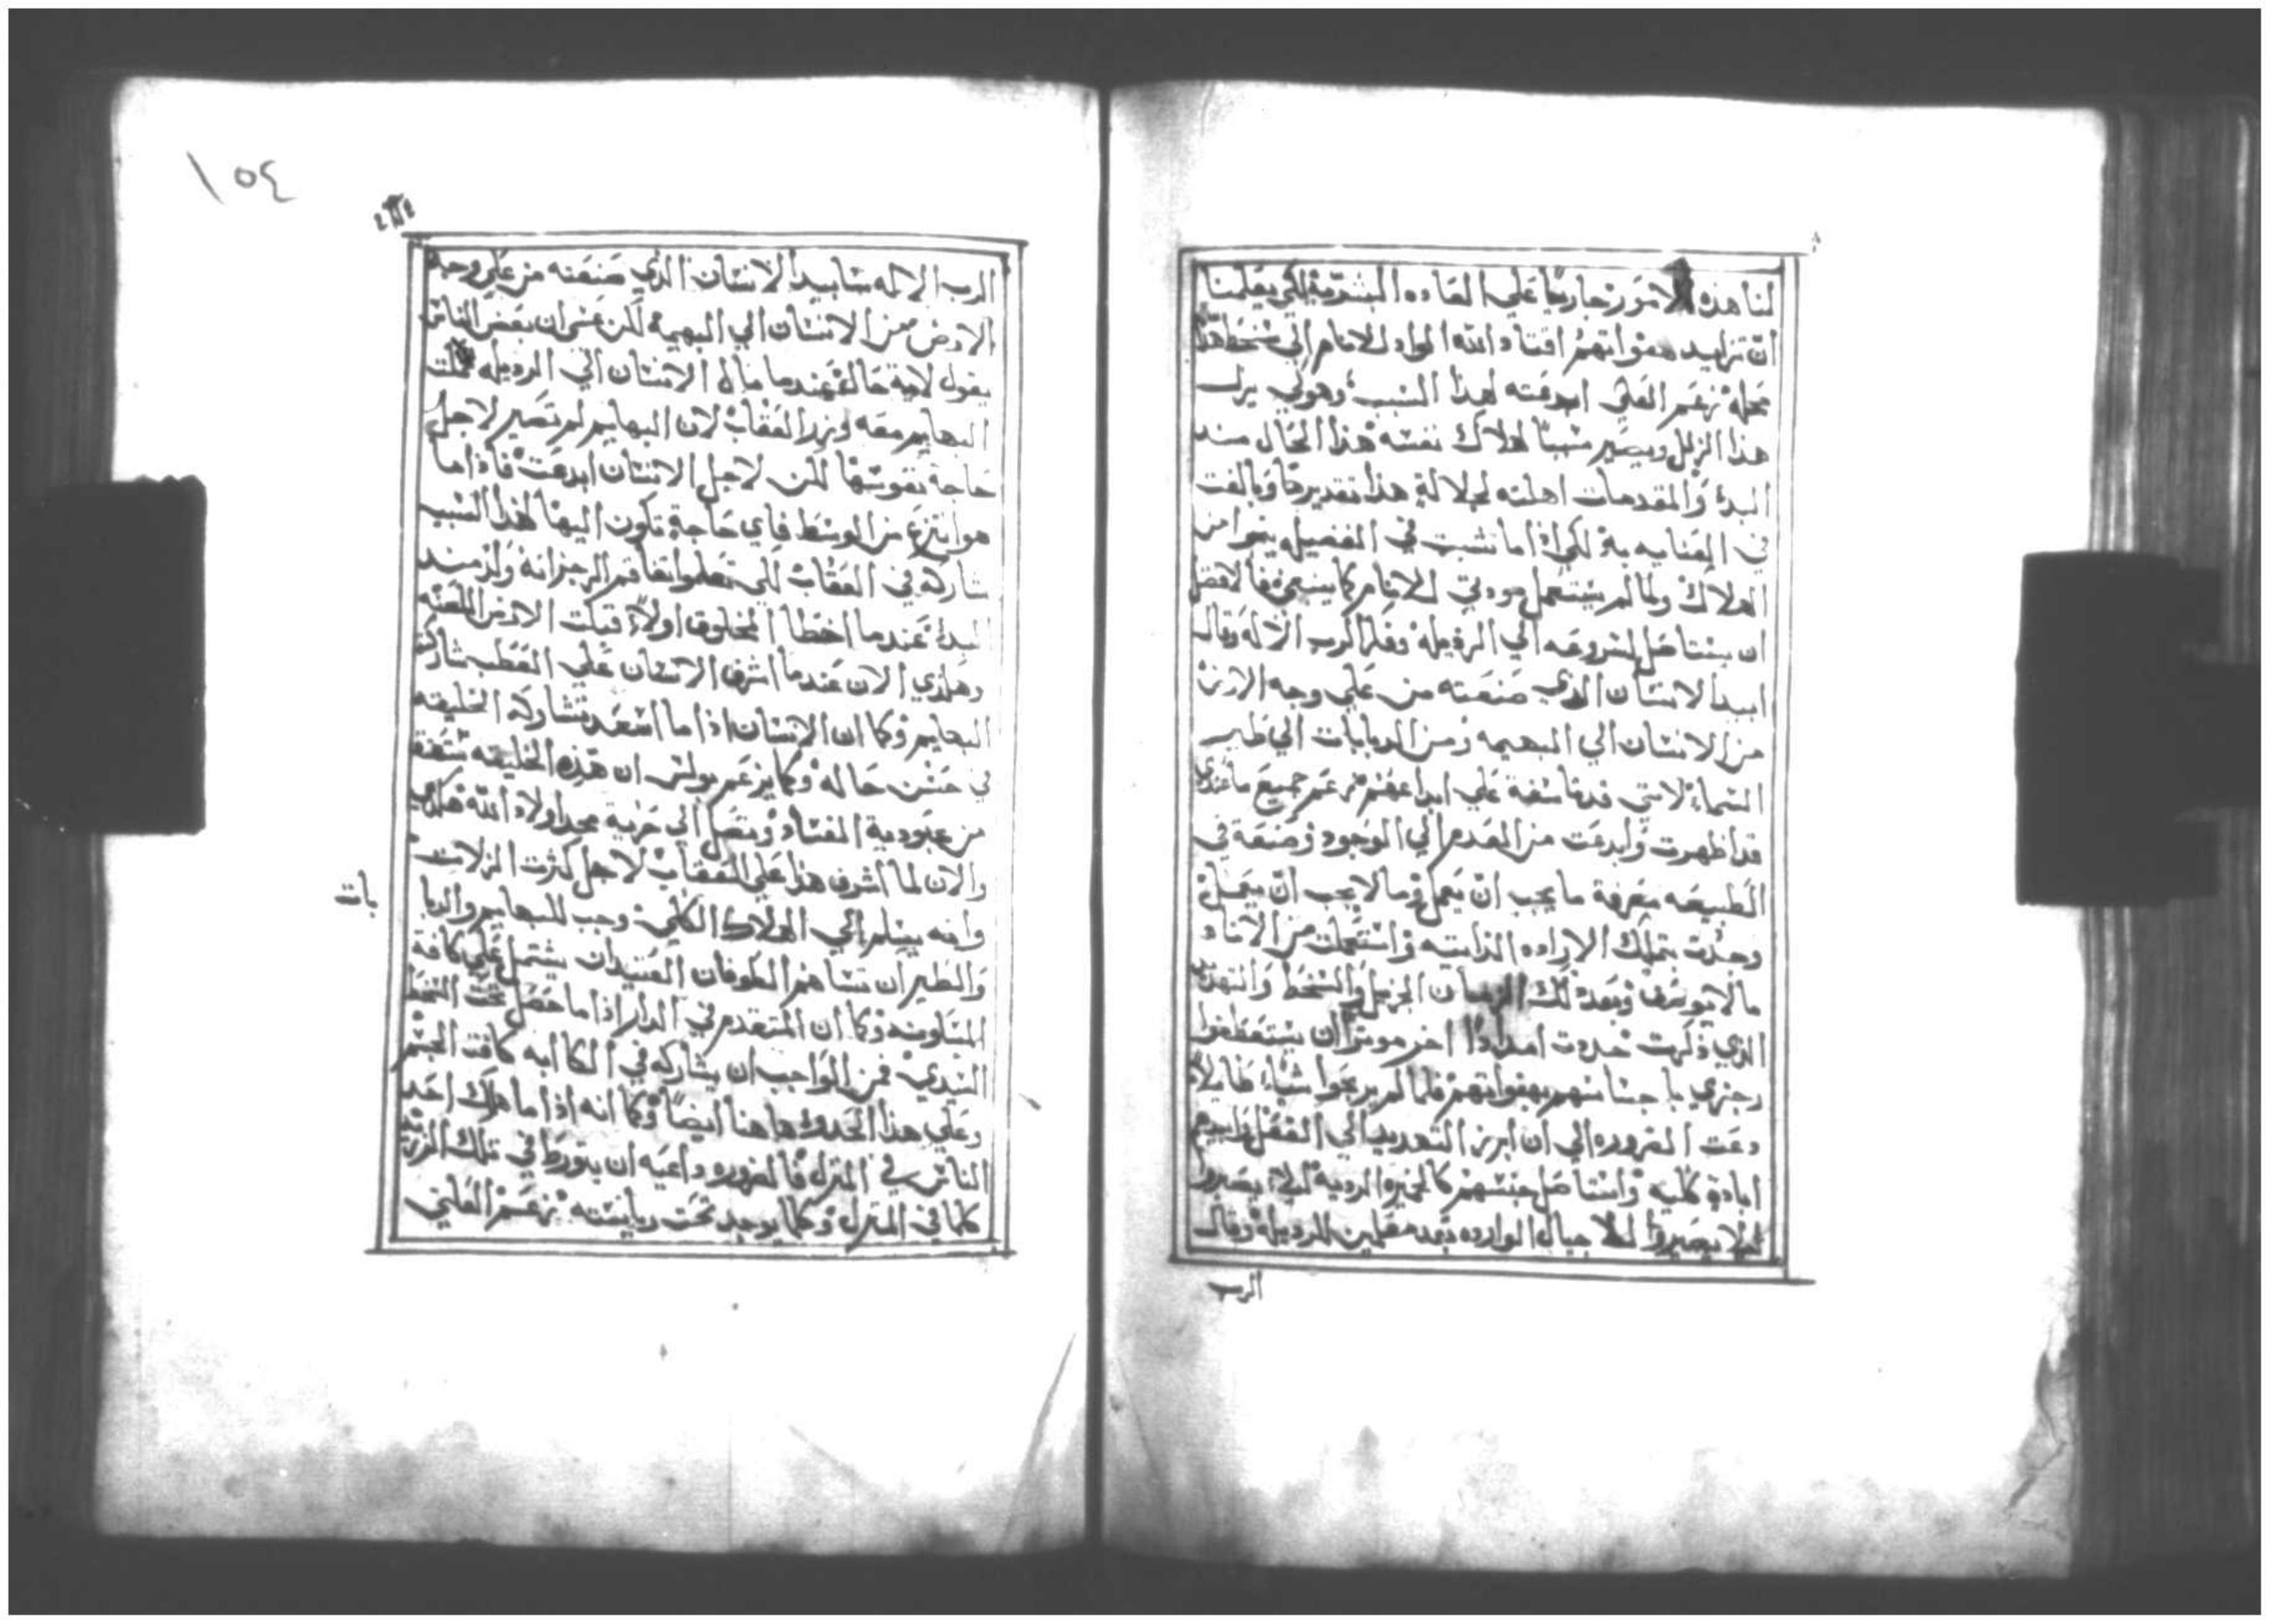 لنا هذه الامور جاريا علي العاده البشرية لكي يعلمنا
ان تزايد هفواتهم اقتاد الله الواد للانام الي سخط هذا
محله نزعم العلي ابدعته لهذا السبب وهولي يرل
هذا الزلل ويصير سببا لهلاك نفسه هذا الحال منذ
البدء والمقدمات اهلته لجلالة هذا تقديرها وبالغت
في العنايه به لكي اذا ما نشبت في الفضيله ينجوا من
الهلاك ولما لم يستعمل مودتي للانام كما ينبغي فالافضل
ان يستاصل لشروعه الي الرذيله وفكر الرب الاله وقال
ابيد الانسان الذي صنعته من علي وجه الارض
من الانسان الي البهيمه ومن الدبابات الي طير
السماء لانني ندمت علي ابداعهم نزعم جميع ما عندي
قد اظهرت وابدعت من العدم الي الوجود وضعة في
الطبيعه معرفة ما يجب ان يعمل وما لا يجب ان يعمل
وجدت بتملك الاراده الذاتيه واستعملت من الاناه
ما لا يوصف وبعد ذلك الزمان الجزيل والسخط والتهديد
الذي ذكرت حددت امدادا اخر موثرا ان يستعطفوا
رجزي باحساسهم بهفواتهم فلما لم يربحوا شيا طايلا
دعت الضروره الي ان ابرز التهديد الي الفعل وابيدهم
ابادة كليه واستاصل جنسهم كالخميره الرديه ليلا يصيروا
ليلا يصيروا للاجيال الوارده بعد معلمين للرذيله وقال
الرب
١٥٤
الرب الاله سابيد الانسان الذي صنعته من علي وجه
الارض من الانسان الي البهيمة لكن عسي ان بعض الناس
يقول لاية حال عندما مال الانسان الي الرذيله
البهايم معه وبزد العقاب لان البهايم لم تصير لاجل
حاجة نفوسها لكن لاجل الانسان ابدعت فاذا ما
هو انتزع من الوسط فاي حاجة تكون اليها لهذا السبب
شاركه في العقاب لكي تعلموا تفاقم الرجزانه ولازمنذ
البدء عندما اخطا المخلوق اولا قبلت الارض اللعنه
وهكذي الان عندما اشرف الانسان علي العطب شاركته
البهايم وكما ان الانسان اذا ما اسعد تشاركه الخليقه
في حسن حاله وكما يزعم بولس ان هذه الخليقه ستعتق
من عبودية الفساد وتصل الي حرية مجد اولاد الله هكذي
والان لما اشرف هذا علي العقاب لاجل كثرت الزلات
وانه يسلم الي الهلاك الكلي وجب للبهايم والدبا
بات
والطير ان تساهم الطوفان العتيد ان يشتمل علي كافة
المسكونه وكما ان المتقدم في الدار اذا ما حصل تحت السخط
السيدي فمن الواجب ان يشاركه في الكابه كافت الحشم
وعلي هذا الحدو هاهنا ايضا وكما انه اذا ما هلك احد
الناس في المنزل فالضروره داعيه ان يتورط في تلك
كلما في المنزل وكلما يوجد تحت رياسته نزعم العلي